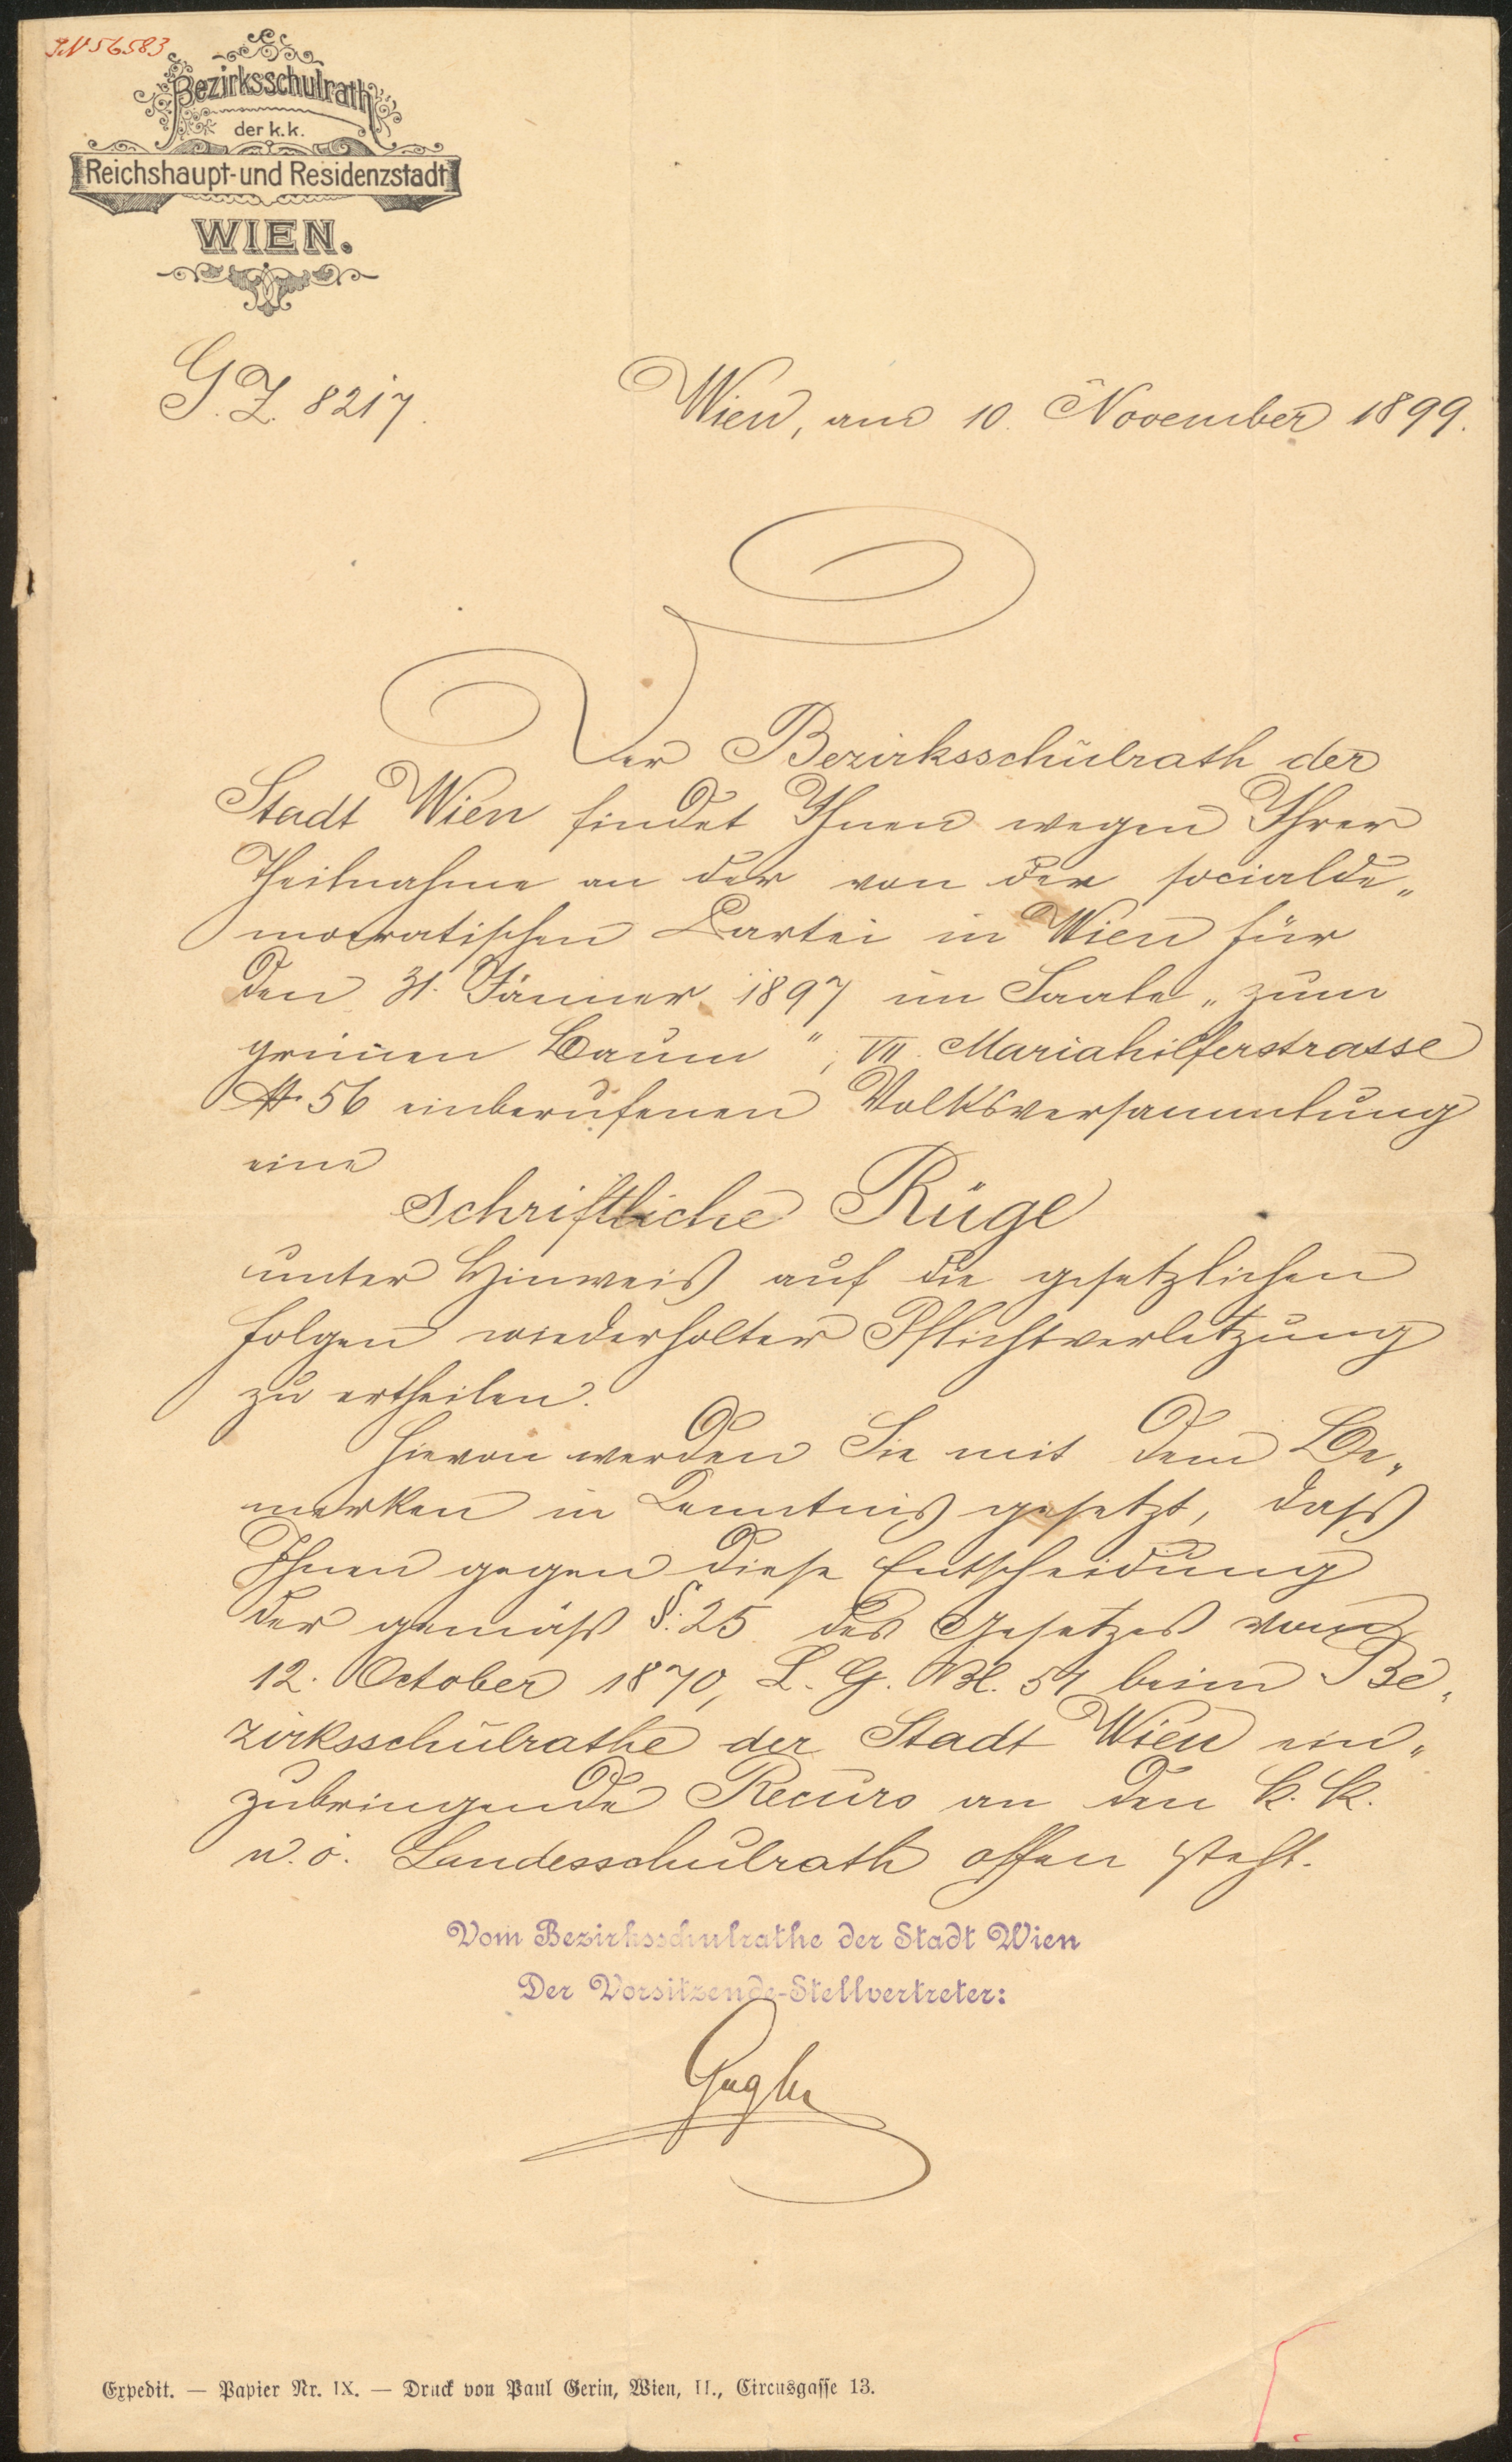 IN 56583
Bezirksschulrath
der k. k.
Reichshaupt- und Residenzstadt
WIEN.
G. Z. 8217.
Wien, am 10. November 1899.
Der Bezirksschulrath der
Stadt Wien findet Ihnen wegen Ihrer
Theilnahme an der von der socialde„
mocratischen Partei in Wien für
den 31. Jänner 1897 im Saale „zum
grünen Baum“, VII. Mariahilferstrasse
№ 56 einberufenen Volksversammlung
eine
schriftliche Rüge
unter Hinweis auf die gesetzlichen
Folgen wiederholter Pflichtverletzung
zu ertheilen.
Hievon werden Sie mit dem Be„
merken in Kenntnis gesetzt, dass
Ihnen gegen diese Entscheidung
der gemäß §. 25 des Gesetzes vom
12. October 1870, L. G. Bl. 51 beim Be„
zirksschulrathe der Stadt Wien ein„
zubringende Recurs an den k. k.
n. ö. Landesschulrath offen steht.
Vom Bezirksschulrathe der Stadt Wien
Der Vorsitzende-Stellvertreter:
Gugler
Expedit. — Papier Nr. IX. — Druck von Paul Gerin, Wien, II., Circusgasse 13.